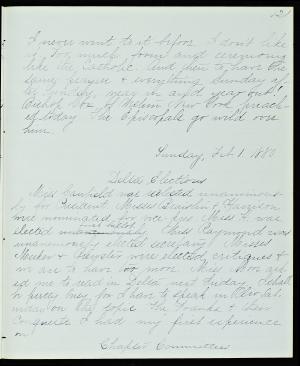 121
I never want to it before. I don't like
it. Too much form and ceremony
like the Catholic. And then to have the
same prayer & everything Sunday af-
ter Sunday, year in and year out!
Bishop Cox of Western New York preach-
ed today. The Episcopals go wild over
him.
Sunday, Feb 1. 1880
Delta Elections
Miss Canfield was elected unanimous-
ly for President. Misses &
were nominated for vice pres. Miss H. was
elected unanimously. Miss Raymond was
unanimously elected secretary. Misses
Meeker & were elected critiques &
we are to have two more. Miss ask-
ed me to read in Delta next Friday. I shall
be pretty busy for I have to speak in
on the topic The Franks & their
Conquests. I had my first experience
on
Chapter Committees